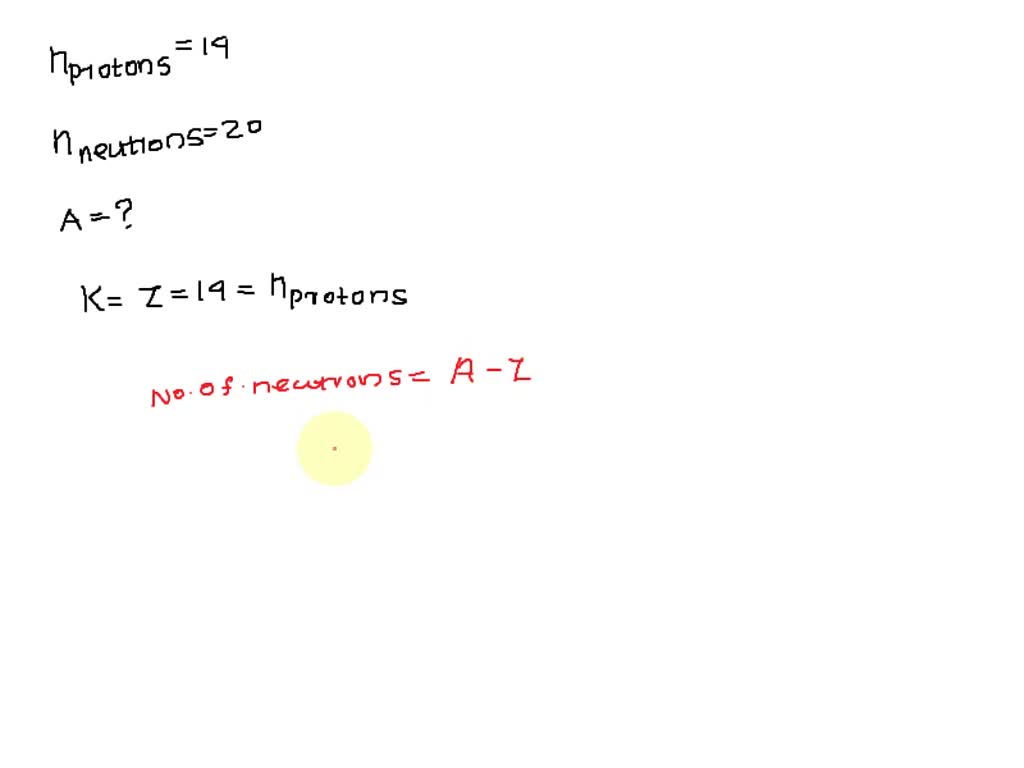 nprotons = 19
nneutrons = 20
A = ?
K = Z = 19 = nprotons
No. of. neutrons = A - Z